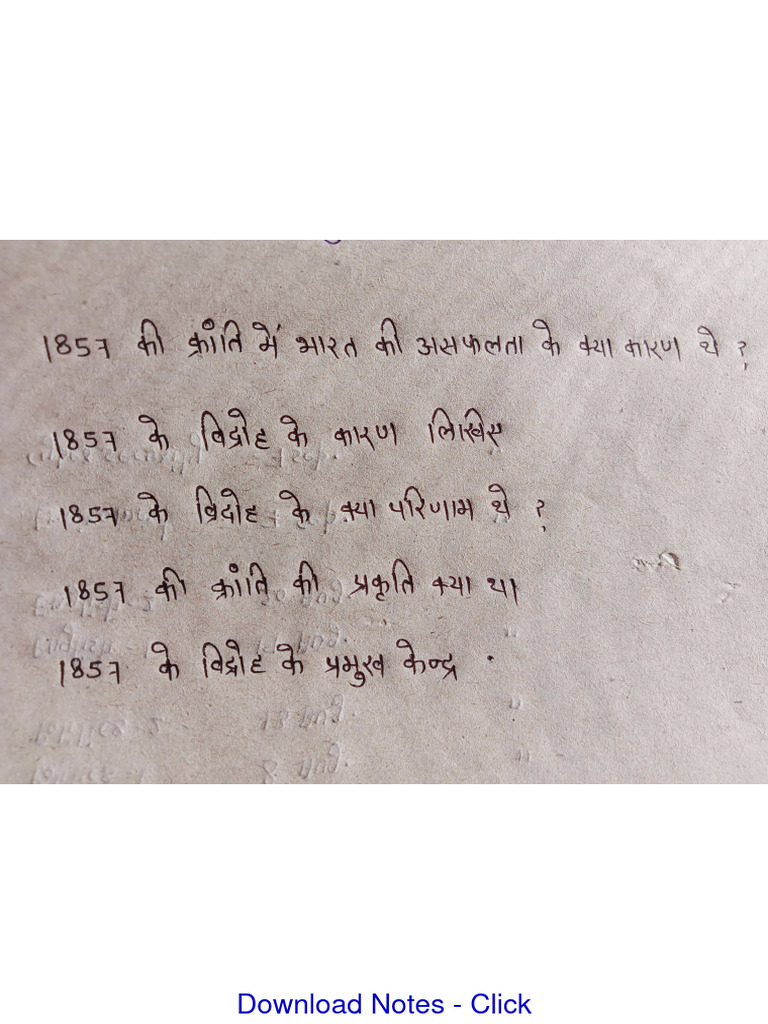 1857 की क्रांति में भारत की असफलता के क्या कारण थे ?
1857 के विद्रोह के कारण लिखिए
1857 के विद्रोह के क्या परिणाम थे ?
1857 की क्रांति की प्रकृति क्या था
1857 के विद्रोह के प्रमुख केन्द्र .
Download Notes - Click